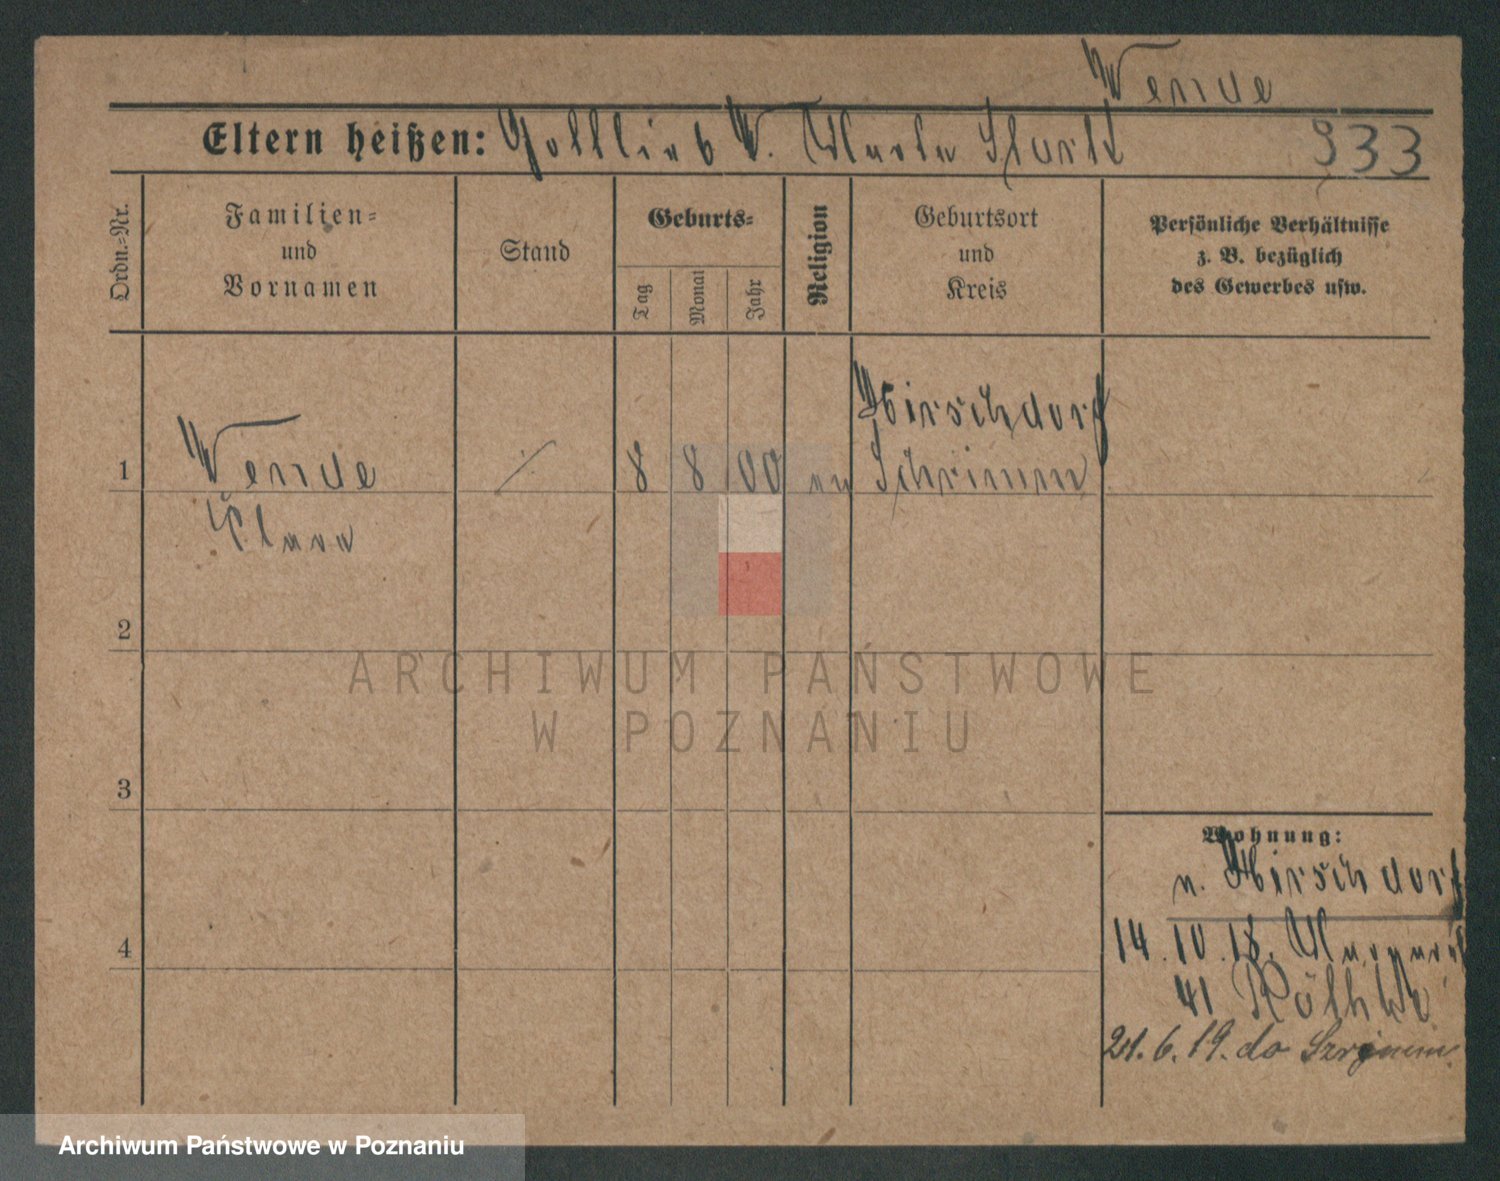 Wende
Eltern heißen: Gottlieb W. Marta
933
Ordn.=Nr.
Familien=
und
Vornamen
Stand
Geburts=
Tag
Monat
Jahr
Religion
Geburtsort
und
Kreis
Persönliche Verhältnisse
z. B. bezüglich
des Gewerbes usw.
1
Wende
8 8 00 ev
Hirschdorf
Schrimm
Clara
2
ARCHIWUM PAŃSTWOWE
W POZNANIU
3
Wohnung:
n. Hirschdorf
4
14.10.18.
41
21.6.19. do Szrimm
Archiwum Państwowe w Poznaniu